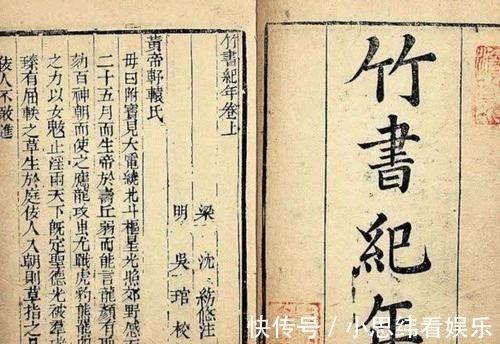 竹書紀年
竹書紀年卷上
梁 沈 注
明 吳琯校
黃帝軒轅氏
母曰附寶見大電繞北斗樞星光照郊野感而
二十五月而生帝於壽丘弱而能言龍顏有聖
劾百神朝而使之應龍攻蚩尤戰虎豹熊羆
之力以女魃止淫雨天下既定聖德光被羣瑞
臻有屈軼之草生於庭佞人入朝則草指之
佞人不敢進
快传号 / 小思纬看娱乐